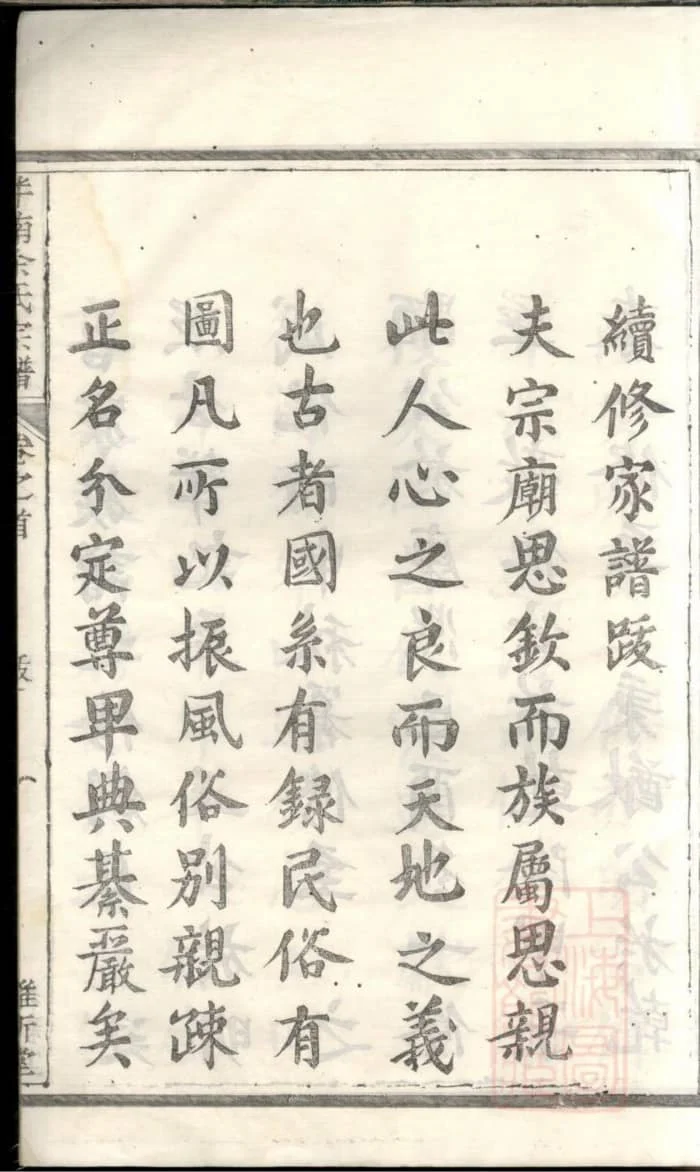 續修家譜跋
夫宗廟思欽而族屬思親
此人心之良而天地之義
也古者國系有録民俗有
圖凡所以振風俗別親疎
正名分定尊卑典綦嚴矣
南余氏宗譜
卷之首
跋
一